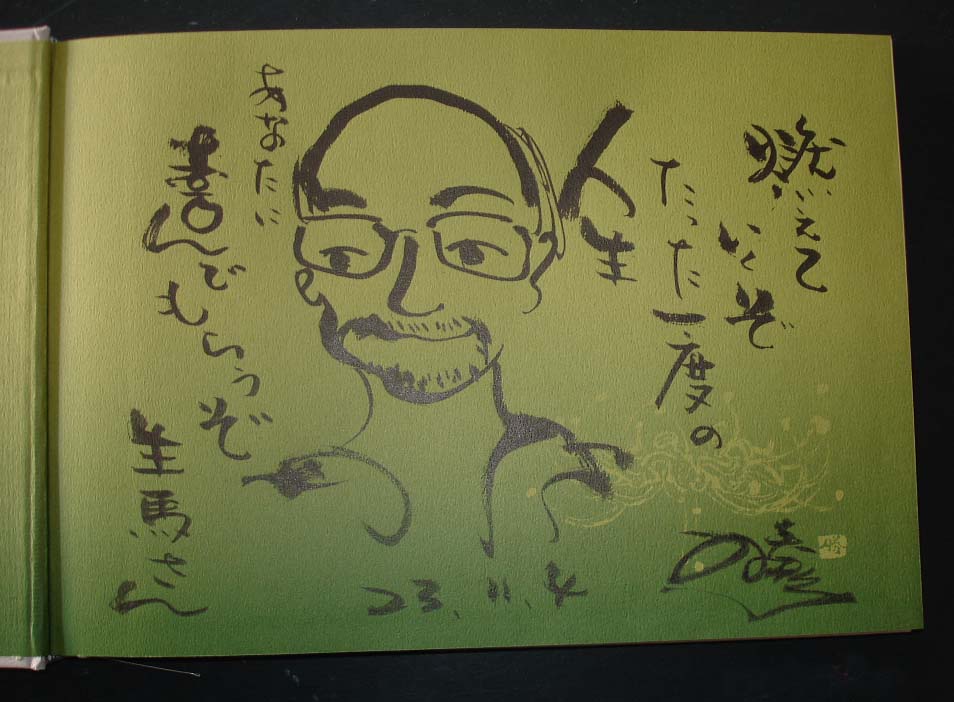 燃えて
いくぞ
たった一度の
人生
あなたに
喜んでもらうぞ
生馬さん
23.11.4